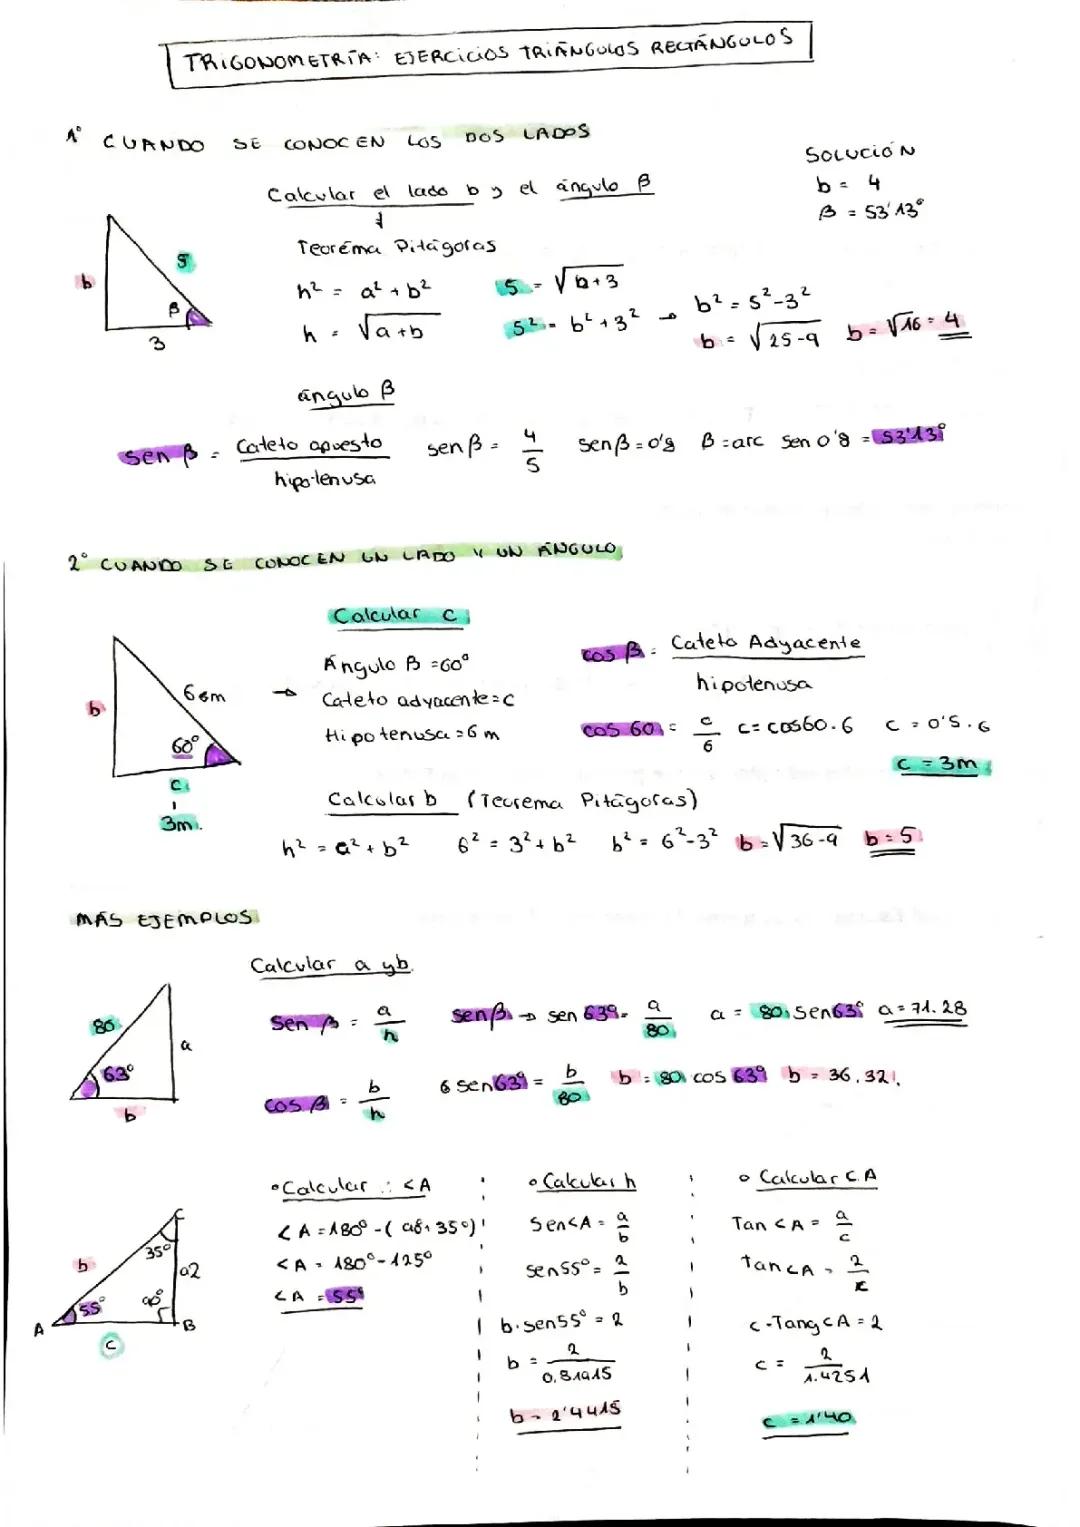 TRIGONOMETRÍA: EJERCICIOS TRIÁNGULOS RECTÁNGULOS
1º CUANDO SE CONOCEN LOS DOS LADOS
SOLUCIÓN
b = 4
β = 53'13º
Calcular el lado b y el ángulo β
Teorema Pitágoras
b
5
β
3
h² = a² + b²
h = √a+b
5 = √b+3
5² = b² + 3² → b² = 5²-3²
b = √25-9 b = √16 = 4
ángulo β
sen β = Cateto opuesto / hipotenusa sen β = 4/5 sen β = 0'8 β = arc sen 0'8 = 53'13º
2º CUANDO SE CONOCEN UN LADO Y UN ÁNGULO
Calcular c
b
60º
c
3m.
→ Ángulo β = 60º
Cateto adyacente = c
Hipotenusa = 6 m
cos β = Cateto Adyacente / hipotenusa
cos 60 = c/6 c = cos60·6 c = 0'5·6
c = 3m
Calcular b (Teorema Pitágoras)
h² = a² + b² 6² = 3² + b² b² = 6²-3² b = √36-9 b = 5
MÁS EJEMPLOS
Calcular a y b.
80
63º
a
b
sen β = a/h sen β → sen 63º = a/80 a = 80·sen63º a = 71.28
cos β = b/h
6 sen63º = b/80 b = 80·cos 63º b = 36.32
C
35º
b
a2
55º
90º
A
B
c
• Calcular : <A
< A = 180º - ( 90+35º)
< A = 180º-125º
< A = 55º
• Calcular h
Sen<A = a/b
sen55º = 2/b
b·sen55º = 2
b = 2/0.81915
b = 2'4415
• Calcular C.A
Tan < A = a/c
tan<A = 2/c
c·Tang<A = 2
c = 2/1.4251
c = 1'40